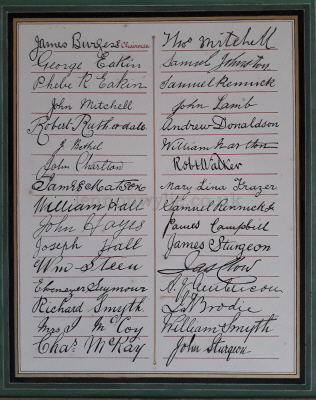 James Burgess Chairman
George Eakin
Phebe R Eakin
John Mitchell
Robert Rutherdale
J. Bethel
John Charlton
James Matson
William Hall
John Hayes
Joseph Hall
Wm Steen
Ebenezer Seymour
Richard Smyth
Mrs J McCoy
Chas McKay
Thos Mitchell
Samuel Johnston
Samuel Rennick
John Lamb
Andrew Donaldson
William
Robt Walker
Mary Lina Frazer
Samuel Rennick
James Campbill
James Sturgeon
Jas
Brodie
William Smyth
John Sturgeon